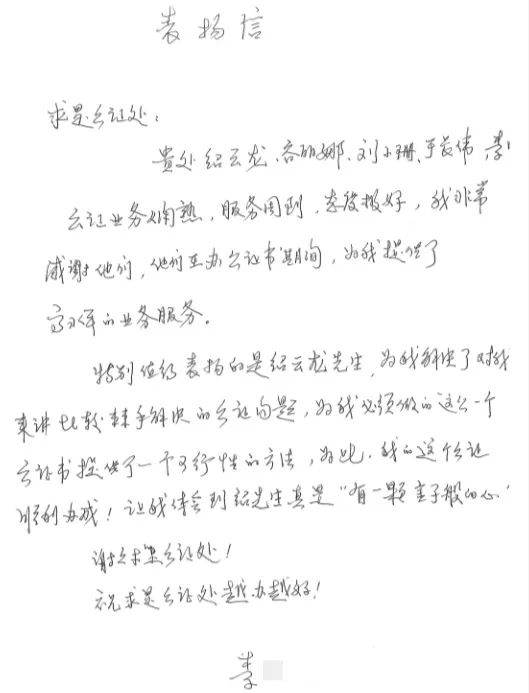 表扬信
求是公证处:
贵处绍云龙、容丽娜、刘小珊、于长伟、李
公证业务娴熟,服务周到,态度极好,我非常
感谢他们,他们在办公证书期间,为我提供了
高效率的业务服务。
特别值得表扬的是绍云龙先生,为我解决了对我
来讲比较棘手解决的公证问题,为我必须做的这么一个
公证书提供了一个可行性的方法,为此,我的这个公证
顺利办成!让我体会到绍先生真是“有一颗金子般的心”
谢谢求是公证处!
祝求是公证处越办越好!
李